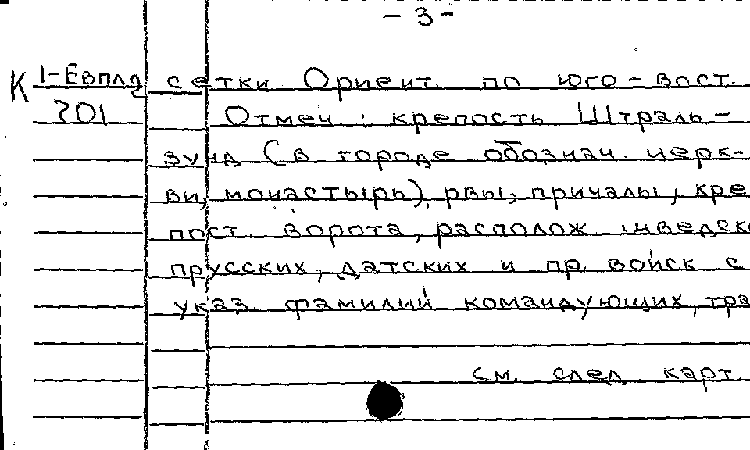 - 3 -
К 1-Евплд сетки. Ориент. по юго-вост.
201 Отмеч.: крепость Штраль-
зунд (в городе обознач. церк-
ви, монастырь), рвы, причалы, кре
пост. ворота, располож. шведск
прусских, датских и пр. войск с
указ. фамилий командующих, тра
см. след. карт.